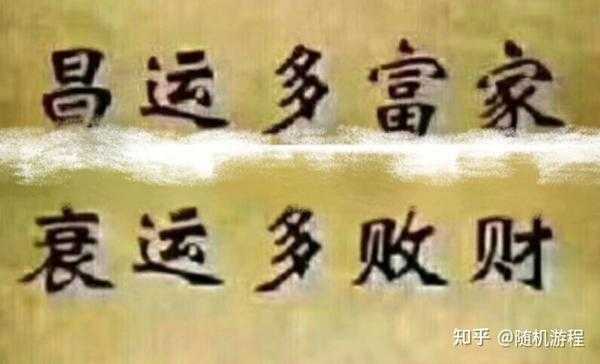 昌运多富家
衰运多败财
知乎 @随机游程